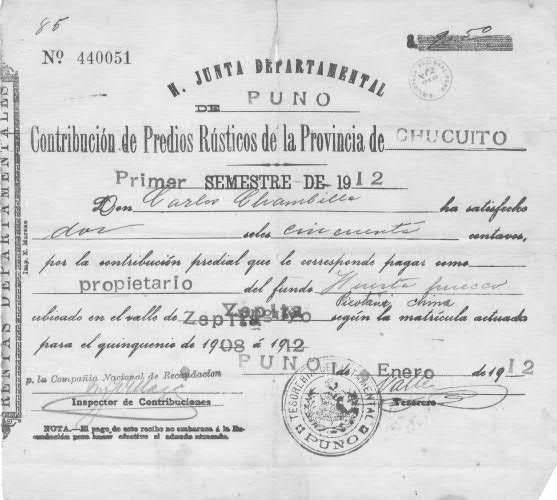 85
S. 2.50
Nº 440051
H. JUNTA DEPARTAMENTAL
DE PUNO
Contribución de Predios Rústicos de la Provincia de CHUCUITO
Primer SEMESTRE DE 1912
Don Carlos Chambilla ha satisfecho
dos soles cincuenta centavos,
por la contribución predial que le corresponde pagar como
propietario del fundo
ubicado en el valle de Zepita según la matrícula actuada
para el quinquenio de 1908 á 1912
PUNO 1 de Enero de 1912
p. la Compañía Nacional de Recaudacion
Inspector de Contribuciones
Tesorero
TESORERIA DEPARTAMENTAL
PUNO
NOTA.—El pago de este recibo no embaraza á la Re-
caudación para hacer efectivo el adeudo atrasado.
RENTAS DEPARTAMENTALES
Imp. E. Moreno